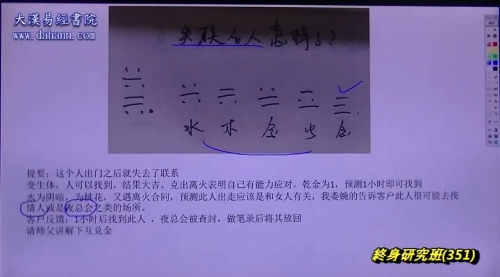 大漢易經書院
www.dahann.com
失联的人怎样了？
水 木 金 火 金
提要：这个人出门之后就失去了联系
变生体，人可以找到，结果大吉。克出离火表明自己有能力应对。乾金为1，预测1小时即可找到
水为阴暗，为桃花，又遇离火合同，预测此人出走应该是和女人有关，我委婉的告诉客户此人很可能去找
情人或是夜总会之类的场所。
客户反馈：1小时后找到此人，夜总会被查封，做笔录后将其放回
请师父讲解下互兑金
終身研究班(351)